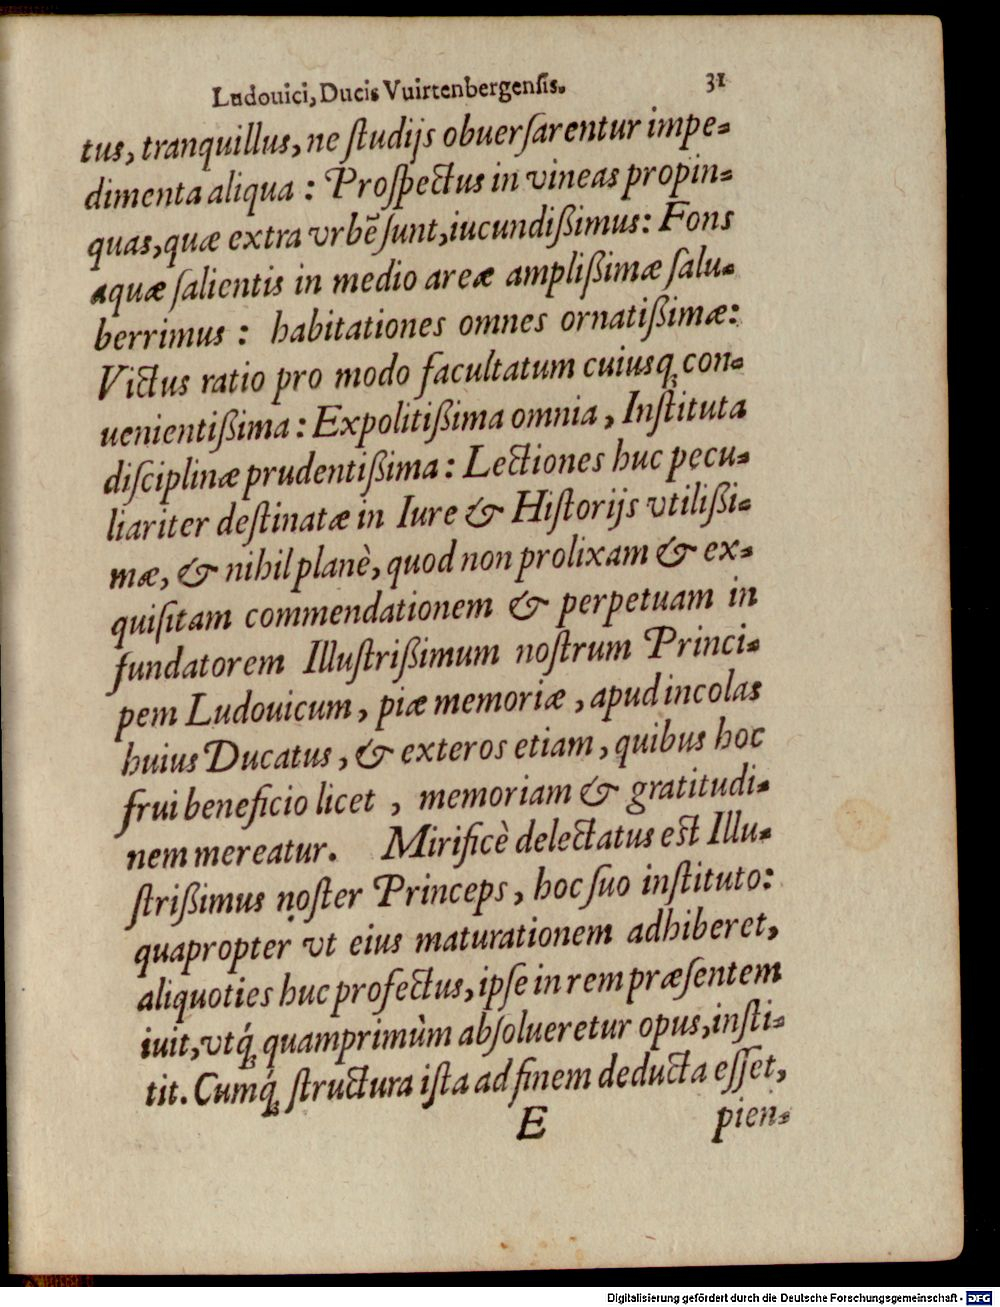 Ludouici, Ducis Vuirtenbergensis. 31
tus, tranquillus, ne ſtudijs obuerſarentur impe-
dimenta aliqua : Proſpectus in vineas propin-
quas, quæ extra vrbẽ ſunt, iucundißimus: Fons
aquæ ſalientis in medio areæ amplißimæ ſalu-
berrimus : habitationes omnes ornatißimæ:
Victus ratio pro modo facultatum cuiusq́; con-
uenientißima : Expolitißima omnia, Inſtituta
diſciplinæ prudentißima : Lectiones huc pecu-
liariter deſtinatæ in Iure & Hiſtorijs vtilißi-
mæ, & nihil planè, quod non prolixam & ex-
quiſitam commendationem & perpetuam in
fundatorem Illuſtrißimum noſtrum Princi-
pem Ludouicum, piæ memoriæ, apud incolas
huius Ducatus, & exteros etiam, quibus hoc
frui beneficio licet , memoriam & gratitudi-
nem mereatur. Mirificè delectatus est Illu-
ſtrißimus noſter Princeps, hoc ſuo inſtituto:
quapropter vt eius maturationem adhiberet,
aliquoties huc profectus, ipſe in rem præſentem
iuit, vtq́; quamprimùm abſolueretur opus, inſti-
tit. Cumq́; ſtructura iſta ad finem deducta eſſet,
E pien-
Digitalisierung gefördert durch die Deutsche Forschungsgemeinschaft - DFG